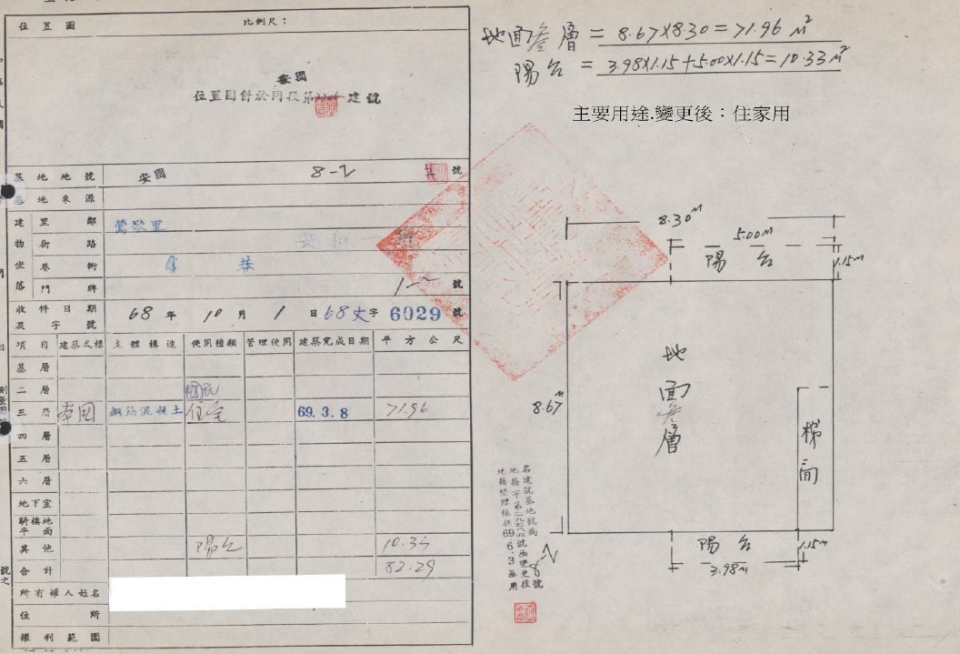 位置圖 比例尺：
安國
位置圖併於同段第 建號
基地地號 安國 8-2 號
基地來源
建物坐落 里鄰 鶯歌里
街路 安和
巷衖 巷
門牌 號
收件日期及字號 68年10月1日68丈字6029號
項目 建築式樣 主體構造 使用種類 管理使用 建築完成日期 平方公尺
基層
二層 國民
三層 本國 鋼筋混凝土 住宅 69.3.8 71.96
四層
五層
六層
地下室
騎樓地平面
其他 陽台 10.33
合計 82.29
所有權人姓名
住所
權利範圍
地面叁層=8.67x8.30=71.96 M²
陽台=3.98x1.15+5.00x1.15=10.33 M²
主要用途.變更後：住家用
8.30M
5.00M
陽台
1.15M
8.67M
地面叁層
梯間
陽台
1.15M
3.98M